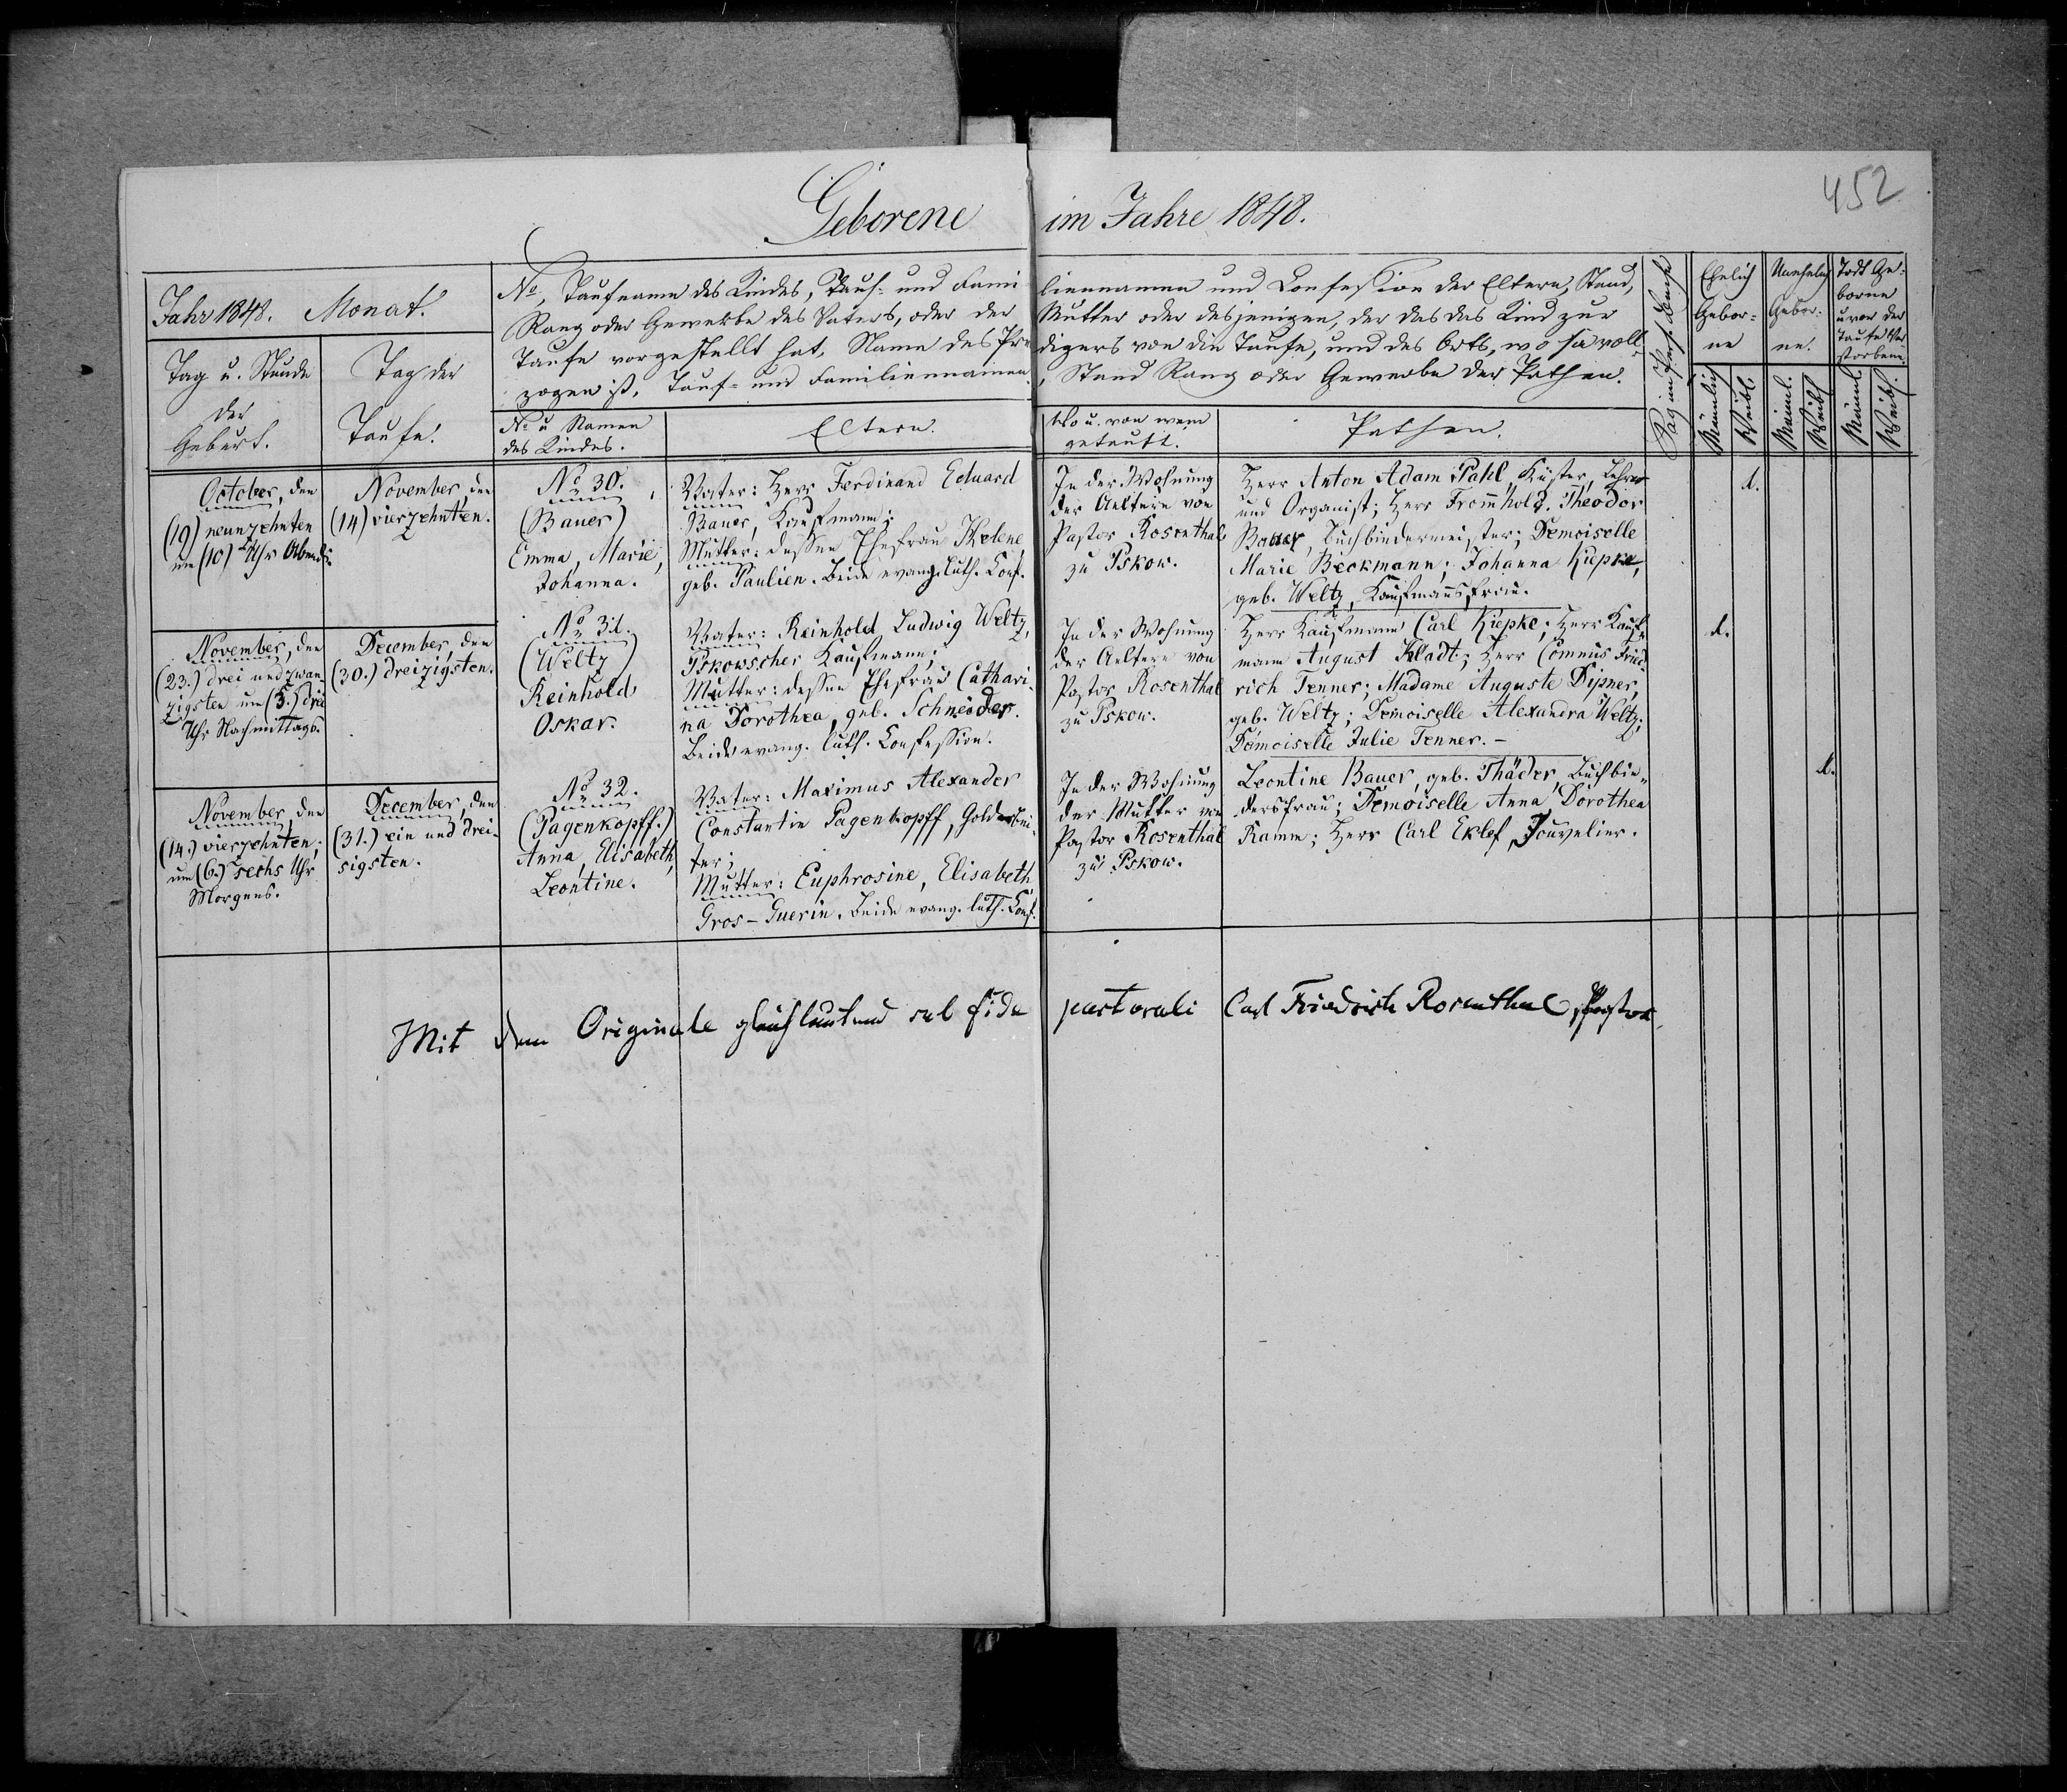 452
Geborene im Jahre 1848.
Jahr 1848. Monat.
Tag u. Stunde
der
Geburt.
Tag der
Taufe.
No, Taufname des Kindes, Tauf- und Fami
liennamen und Confession der Eltern, Stand,
Rang oder Gewerbe des Vaters, oder der
Mutter oder desjenigen, der das Kind zur
Taufe vorgestellt hat, Name des Pre
digers von die Taufe, und des Orts, wo sie voll-
zogen ist, Tauf- und Familiennamen
, Stand Rang oder Gewerbe der Pathen.
No u Namen
des Kindes.
Eltern.
Wo u. von wem
getauft.
Pathen.
Ehelich
Gebor-
ne
Unehelich
Gebor-
ne.
Todt Ge-
borne
u vor der
Taufe Ver
storbene.
Männlich
Weibl.
Männl.
Weibl.
Männl.
Weibl.
October, den
(19) neunzehnten
um (10) Uhr Abends.
November, den
(14) vierzehnten.
No 30.
(Bauer)
Emma, Marie,
Johanna.
Vater: Herr Ferdinand Eduard
Bauer, Kaufmann;
Mutter: dessen Ehefrau Helene
geb. Paulien. Beide evang. luth. Conf.
In der Wohnung
der Aeltern von
Pastor Rosenthal
zu Pskow.
Herr Anton Adam Pahl, Küster, Lehrer
und Organist; Herr Fromhold Theodor
Bauer, Buchbindermeister; Demoiselle
Marie Beckmann; Johanna Kiepke,
geb. Weltz, Kaufmannsfrau.
1.
November, den
(23.) drei und zwan-
zigsten um (3.) drei
Uhr Nachmittags.
December, den
(30.) dreizigsten.
No 31.
(Weltz)
Reinhold
Oskar.
Vater: Reinhold Ludwig Weltz,
Pskowscher Kaufmann;
Mutter: dessen Ehefrau Cathari-
na Dorothea, geb. Schneider.
Beide evang. luth. Confession.
In der Wohnung
der Aeltern von
Pastor Rosenthal
zu Pskow.
Herr Kaufmann Carl Kiepke; Herr Kauf-
mann August Kladt; Herr Commis Fried-
rich Tenner; Madame Auguste Dipner,
geb. Weltz; Demoiselle Alexandra Weltz;
Demoiselle Julie Tenner. -
1.
November, den
(14.) vierzehnten,
um (6.) sechs Uhr
Morgens.
December, den
(31.) ein und drei-
sigsten.
No 32.
(Pagenkopff.)
Anna, Elisabeth,
Leontine.
Vater: Maximus Alexander
Constantin Pagenkopff, Goldarbei-
ter;
Mutter: Euphrosine, Elisabeth
Gros-Guerin. Beide evang. luth. Conf.
In der Wohnung
der Mutter von
Pastor Rosenthal
zu Pskow.
Leontine Bauer, geb. Thäder, Buchbin-
dersfrau; Demoiselle Anna Dorothea
Ramm; Herr Carl Eklef, Jouvelier.
1.
Mit dem Originale gleichlautend sub fide pastorali Carl Friedrich Rosenthal, Pastor